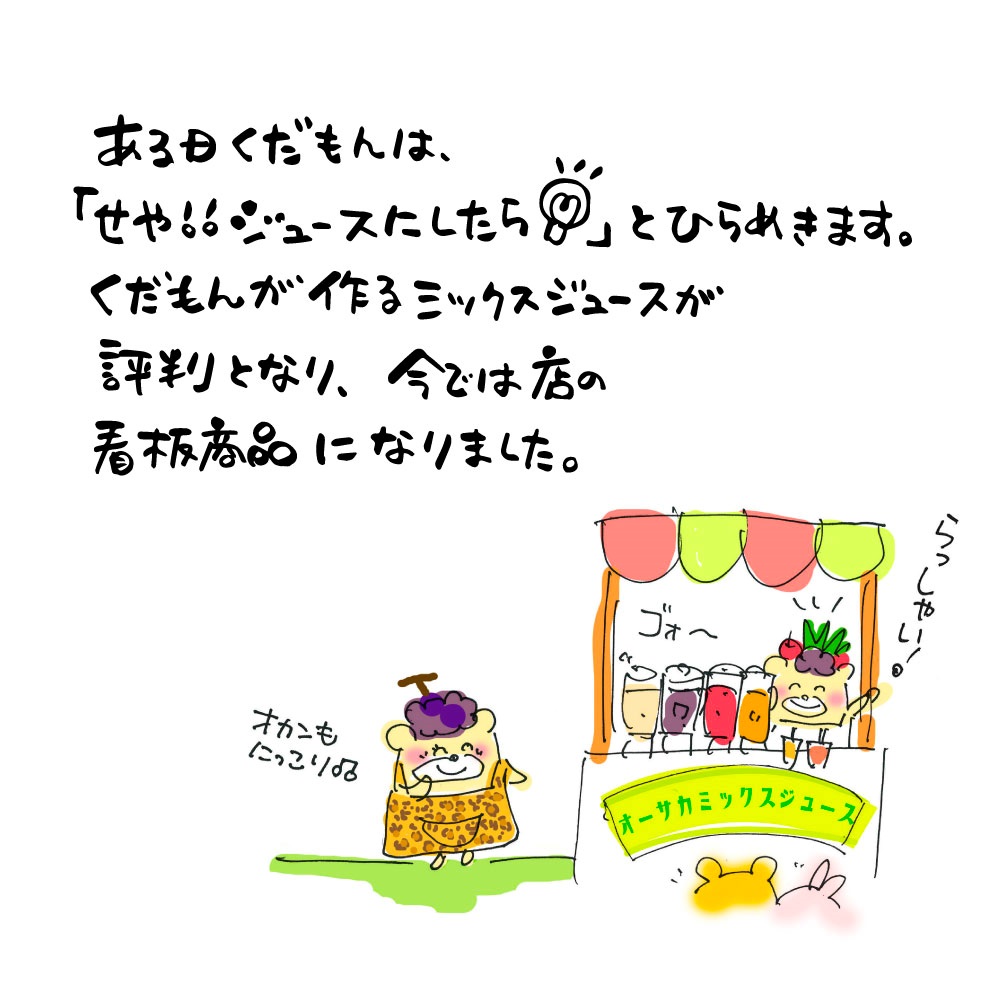 ある日くだもんは、
「せや!!ジュースにしたら」とひらめきます。
くだもんが作るミックスジュースが
評判となり、今では店の
看板商品になりました。
らっしゃい!
ゴォ〜
オカンも
にっこり♫
オーサカミックスジュース